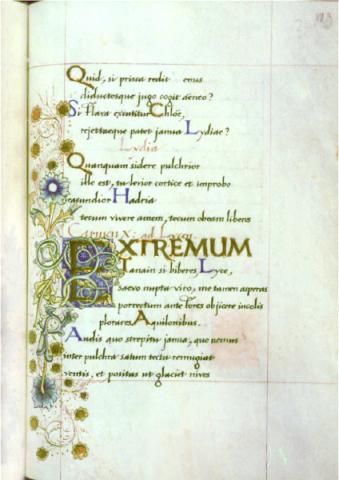 Quid, si prisca redit Venus
diductosque jugo cogit aeneo?
Si flava excutitur Chloë,
rejectaeque patet janua Lydiae?
Lydia
Quanquam sidere pulchrior
ille est, tu levior cortice et improbo
iracundior Hadria
tecum vivere amem, tecum obeam libens
Carmen X: ad Lycen
EXTREMUM
Tanain si biberes Lyce,
saevo nupta viro, me tamen asperas
porrectum ante fores objicere incolis
plorares Aquilonibus.
Audis quo strepitu janua, quo nemus
inter pulchra satum tecta remugiat
ventis, et positas ut glaciet nives